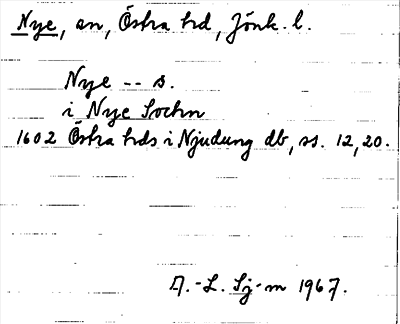 Nye, sn, Östra hd, Jönk. l.
Nye -- s.
i Nye Sochn
1602 Östra hds i Njudung db, ss. 12, 20.
A.-L. Sj-m 1967.